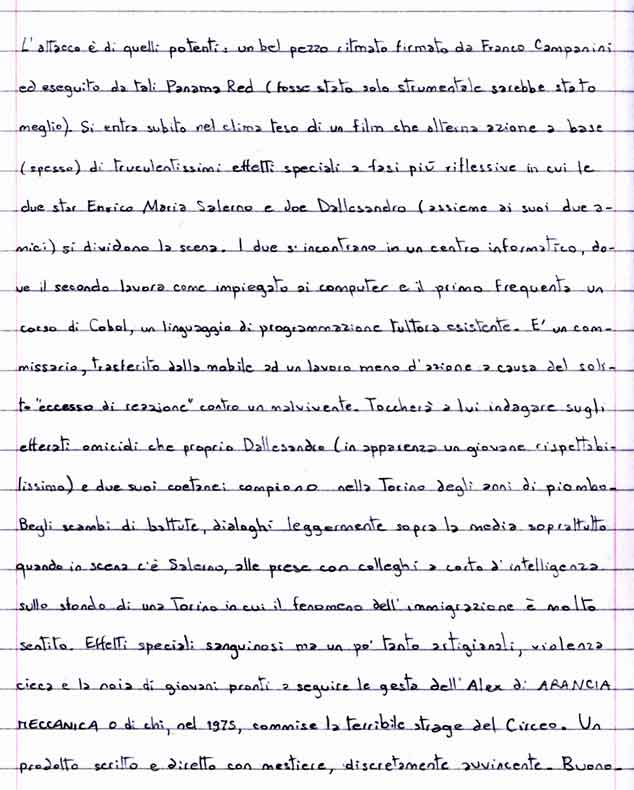 L'attacco è di quelli potenti: un bel pezzo ritmato firmato da Franco Campanini
ed eseguito da tali Panama Red (fosse stato solo strumentale sarebbe stato
meglio). Si entra subito nel clima teso di un film che alterna azione a base
(spesso) di truculentissimi effetti speciali a fasi più riflessive in cui le
due star Enrico Maria Salerno e Joe Dallesandro (assieme ai suoi due a-
mici) si dividono la scena. I due s'incontrano in un centro informatico, do-
ve il secondo lavora come impiegato ai computer e il primo frequenta un
corso di Cobol, un linguaggio di programmazione tuttora esistente. E' un com-
missario, trasferito dalla mobile ad un lavoro meno d'azione a causa del soli-
to "eccesso di reazione" contro un malvivente. Toccherà a lui indagare sugli
efferati omicidi che proprio Dallesandro (in apparenza un giovane rispettabi-
lissimo) e due suoi coetanei compiono nella Torino degli anni di piombo.
Begli scambi di battute, dialoghi leggermente sopra la media soprattutto
quando in scena c'è Salerno, alle prese con colleghi a corto d'intelligenza
sullo sfondo di una Torino in cui il fenomeno dell'immigrazione è molto
sentito. Effetti speciali sanguinosi ma un po' tanto artigianali, violenza
cieca e la noia di giovani pronti a seguire le gesta dell'Alex di ARANCIA
MECCANICA o di chi, nel 1975, commise la terribile strage del Circeo. Un
prodotto scritto e diretto con mestiere, discretamente avvincente. Buono.